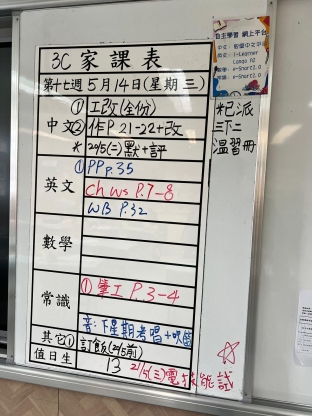 3C 家課表
第十七週 5月14日(星期三)
中文
① 工改(全份)
② 作P.21-22+改
* 20/5(二)默+評
英文
① PP p.35
Ch WS P.7-8
WB P.32
數學
常識
① 筆工 P.3-4
音:下星期考唱+吹笛
其它
① 訂飯(20/5前)
值日生
13
21/5(三)電
試
*已派
三下二
溫習冊
自主學習 網上平台
i-Learner
e-Smart2.0
e-Smart2.0